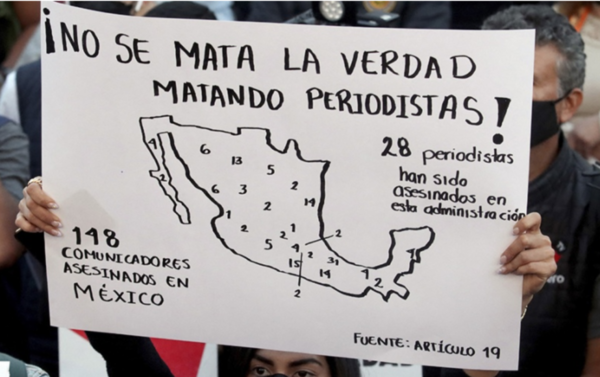 ¡NO SE MATA LA VERDAD
MATANDO PERIODISTAS!
28 periodistas
han sido
asesinados en
esta administración
4
2
6
13
5
6
3
2
2
14
1
2
2
1
2
5
4
2
31
15
14
4
2
1
2
148
COMUNICADORES
ASESINADOS EN
MÉXICO
FUENTE: ARTÍCULO 19